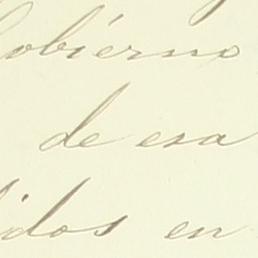 Gobierno
de esa
idos en